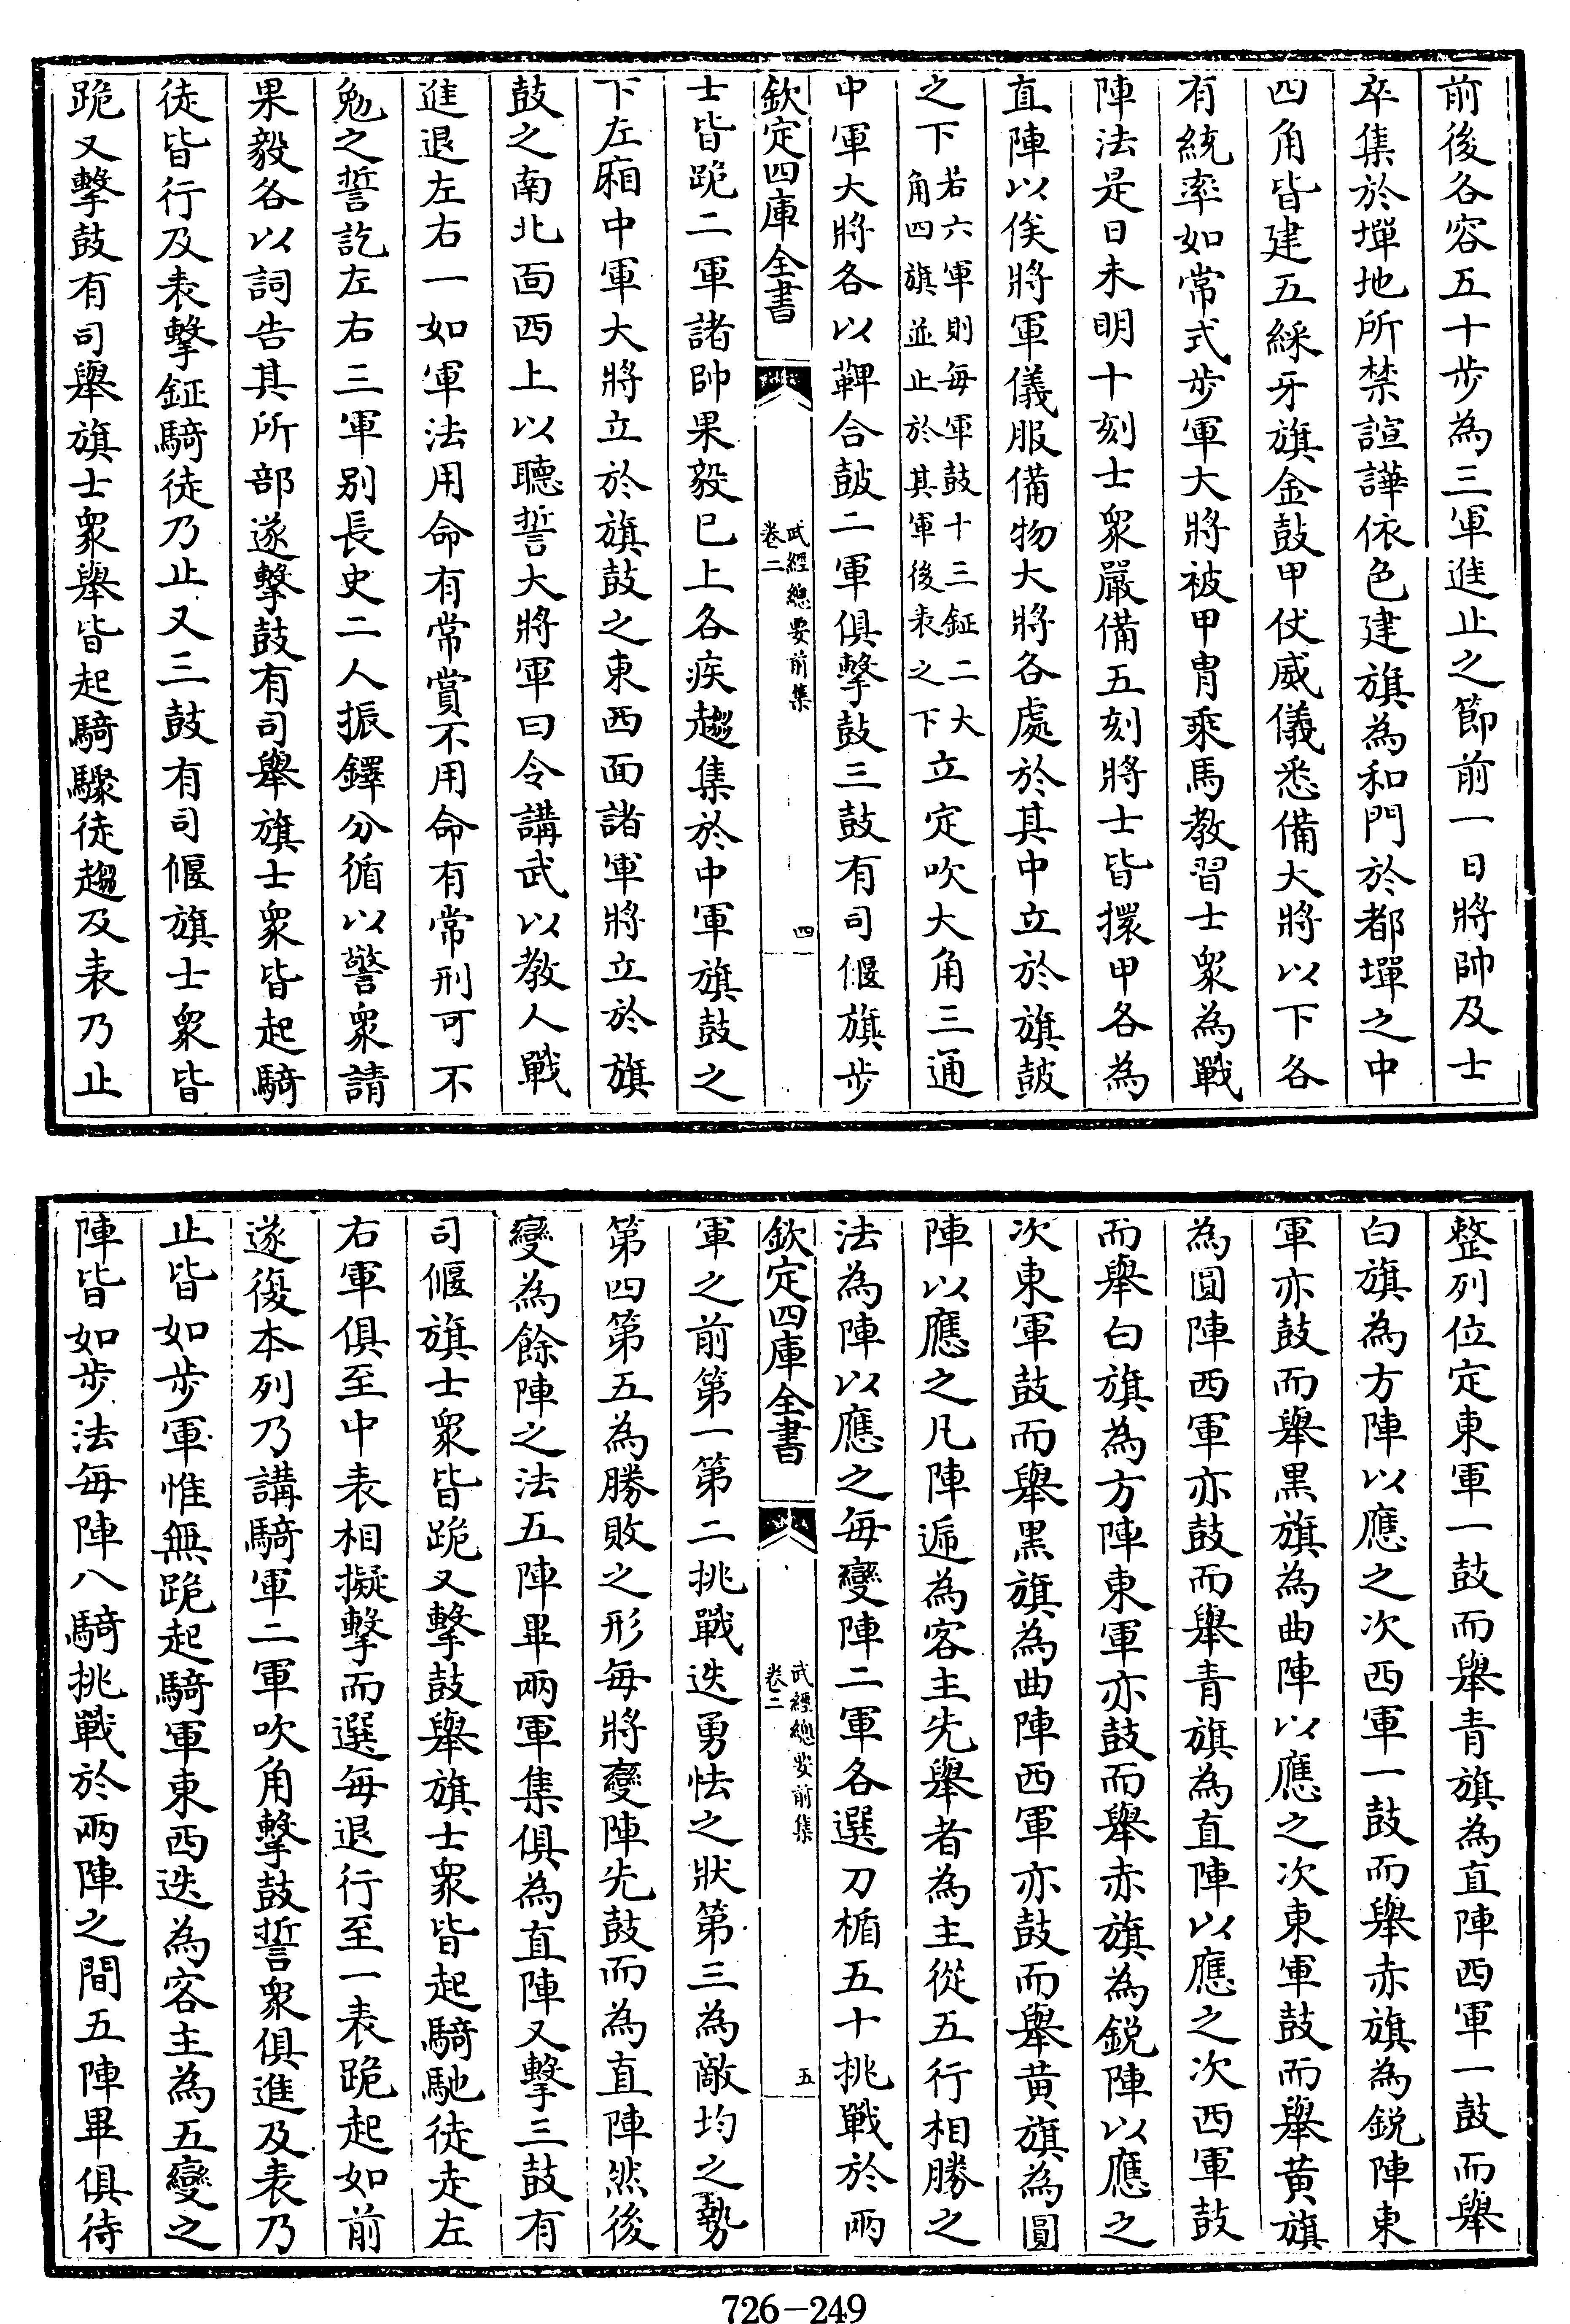 前後各容五十步為三軍進止之節前一日將帥及士
卒集於墠地所禁諠譁依色建旗為和門於都墠之中
四角皆建五綵牙旗金鼓甲仗威儀悉備大將以下各
有統率如常式步軍大將被甲胄乘馬教習士衆為戰
陣法是日未明十刻士衆嚴備五刻將士皆擐甲各為
直陣以俟將軍儀服備物大將各處於其中立於旗鼓
之下若六軍則每軍鼓十三鉦二大角四旗並止於其軍後表之下立定吹大角三通
中軍大將各以鞞合鼓二軍俱擊鼓三鼓有司偃旗步
欽定四庫全書
武經總要前集
卷二
四
士皆跪二軍諸帥果毅已上各疾趨集於中軍旗鼓之
下左廂中軍大將立於旗鼓之東西面諸軍將立於旗
鼓之南北面西上以聽誓大將軍曰令講武以教人戰
進退左右一如軍法用命有常賞不用命有常刑可不
勉之誓訖左右三軍别長史二人振鐸分循以警衆請
果毅各以詞告其所部遂擊鼓有司舉旗士衆皆起騎
徒皆行及表擊鉦騎徒乃止又三鼓有司偃旗士衆皆
跪又擊鼓有司舉旗士衆舉皆起騎驟徒趨及表乃止
整列位定東軍一鼓而舉青旗為直陣西軍一鼓而舉
白旗為方陣以應之次西軍一鼓而舉赤旗為鋭陣東
軍亦鼓而舉黑旗為曲陣以應之次東軍鼓而舉黄旗
為圓陣西軍亦鼓而舉青旗為直陣以應之次西軍鼓
而舉白旗為方陣東軍亦鼓而舉赤旗為鋭陣以應之
次東軍鼓而舉黑旗為曲陣西軍亦鼓而舉黄旗為圓
陣以應之凡陣遞為客主先舉者為主從五行相勝之
法為陣以應之每變陣二軍各選刀楯五十挑戰於兩
欽定四庫全書
武經總要前集
卷二
五
軍之前第一第二挑戰迭勇怯之狀第三為敵均之勢
第四第五為勝敗之形每將變陣先鼓而為直陣然後
變為餘陣之法五陣畢兩軍集俱為直陣又擊三鼓有
司偃旗士衆皆跪又擊鼓舉旗士衆皆起騎馳徒走左
右軍俱至中表相擬擊而選每退行至一表跪起如前
遂復本列乃講騎軍二軍吹角擊鼓誓衆俱進及表乃
止皆如步軍惟無跪起騎軍東西迭為客主為五變之
陣皆如步法每陣八騎挑戰於兩陣之間五陣畢俱待
726—249